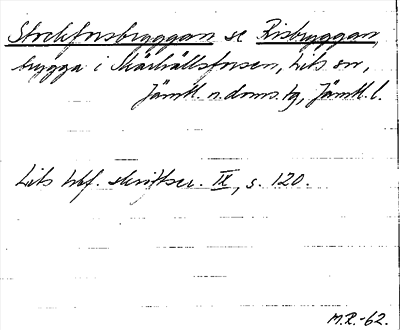 Stockforsbryggan se Risbryggan,
brygga i Mårhållsforsen, Lits sn,
Jämtl. n. doms. tg, Jämtl. l.
Lits hbf. skriftser. IX, s. 120.
M.R.-62.